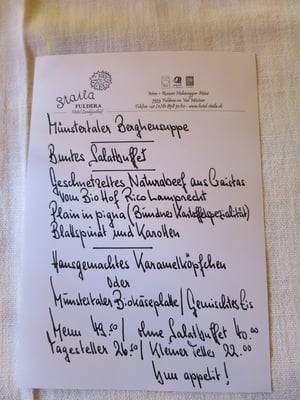 Staila
FULDERA
Hotel Landgasthof
7533 Fuldera im Val Müstair
www.hotel-staila.ch
Münstertaler Bergheusuppe
Buntes Salatbuffet
Geschnetzeltes Naturabeef aus Craistas
vom BioHof Rico Lamprecht
Plain in pigna (Bündner Kartoffelspezialität)
Blattspinat und Karotten
Hausgemachtes Karamelköpfchen
oder
Münstertaler Biokäseplatte / Gemischtes Eis
Menu 49.50 / ohne Salatbuffet 40.00
Tagesteller 26.50 / Kleiner Teller 22.00
Bun appetit!